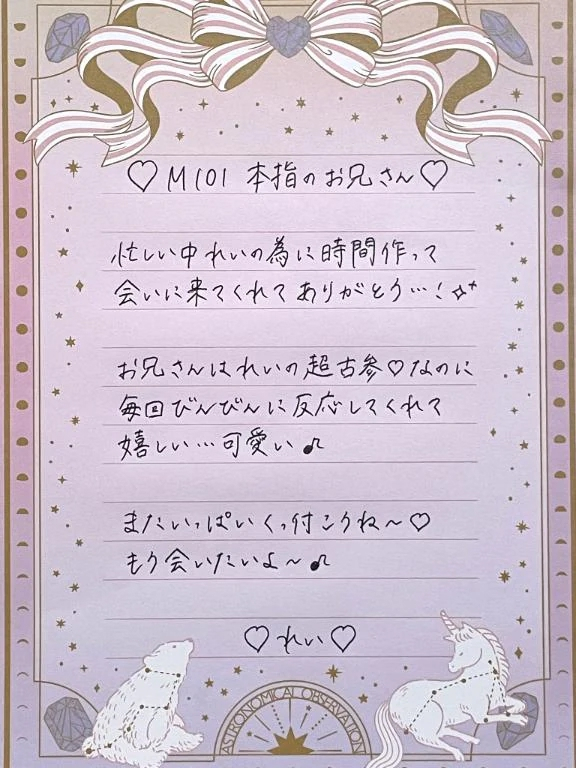 ♡ M101 本指のお兄さん ♡
忙しい中れいの為に時間作って
会いに来てくれてありがとう…!✧⁺
お兄さんはれいの超古参♡なのに
毎回びんびんに反応してくれて
嬉しい…可愛い♪
またいっぱいくっ付こうね〜♡
もう会いたいよ〜♪
♡れい♡
ASTRONOMICAL OBSERVATION